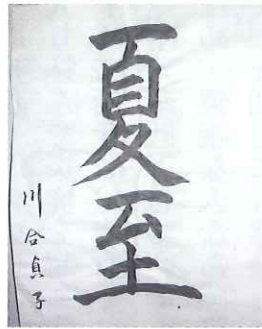 夏至
川合貞子